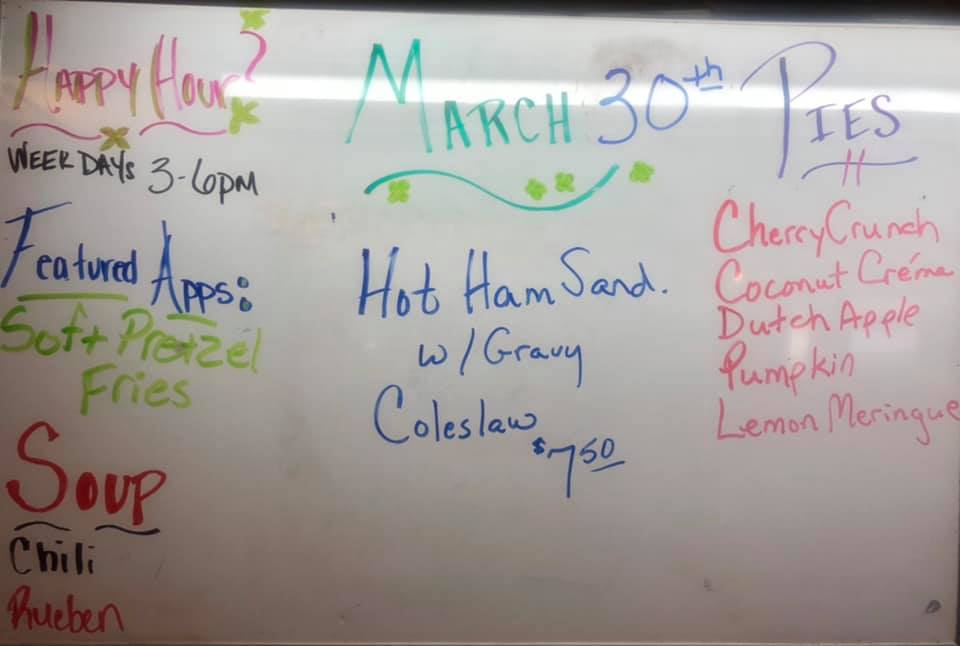 Happy Hour?
Weekdays 3-6pm
Featured Apps:
Soft Pretzel
Fries
Soup
Chili
Rueben
March 30th
Hot Ham Sand.
w/Gravy
Coleslaw
$7.50
Pies
Cherry Crunch
Coconut Créme
Dutch Apple
Pumpkin
Lemon Meringue